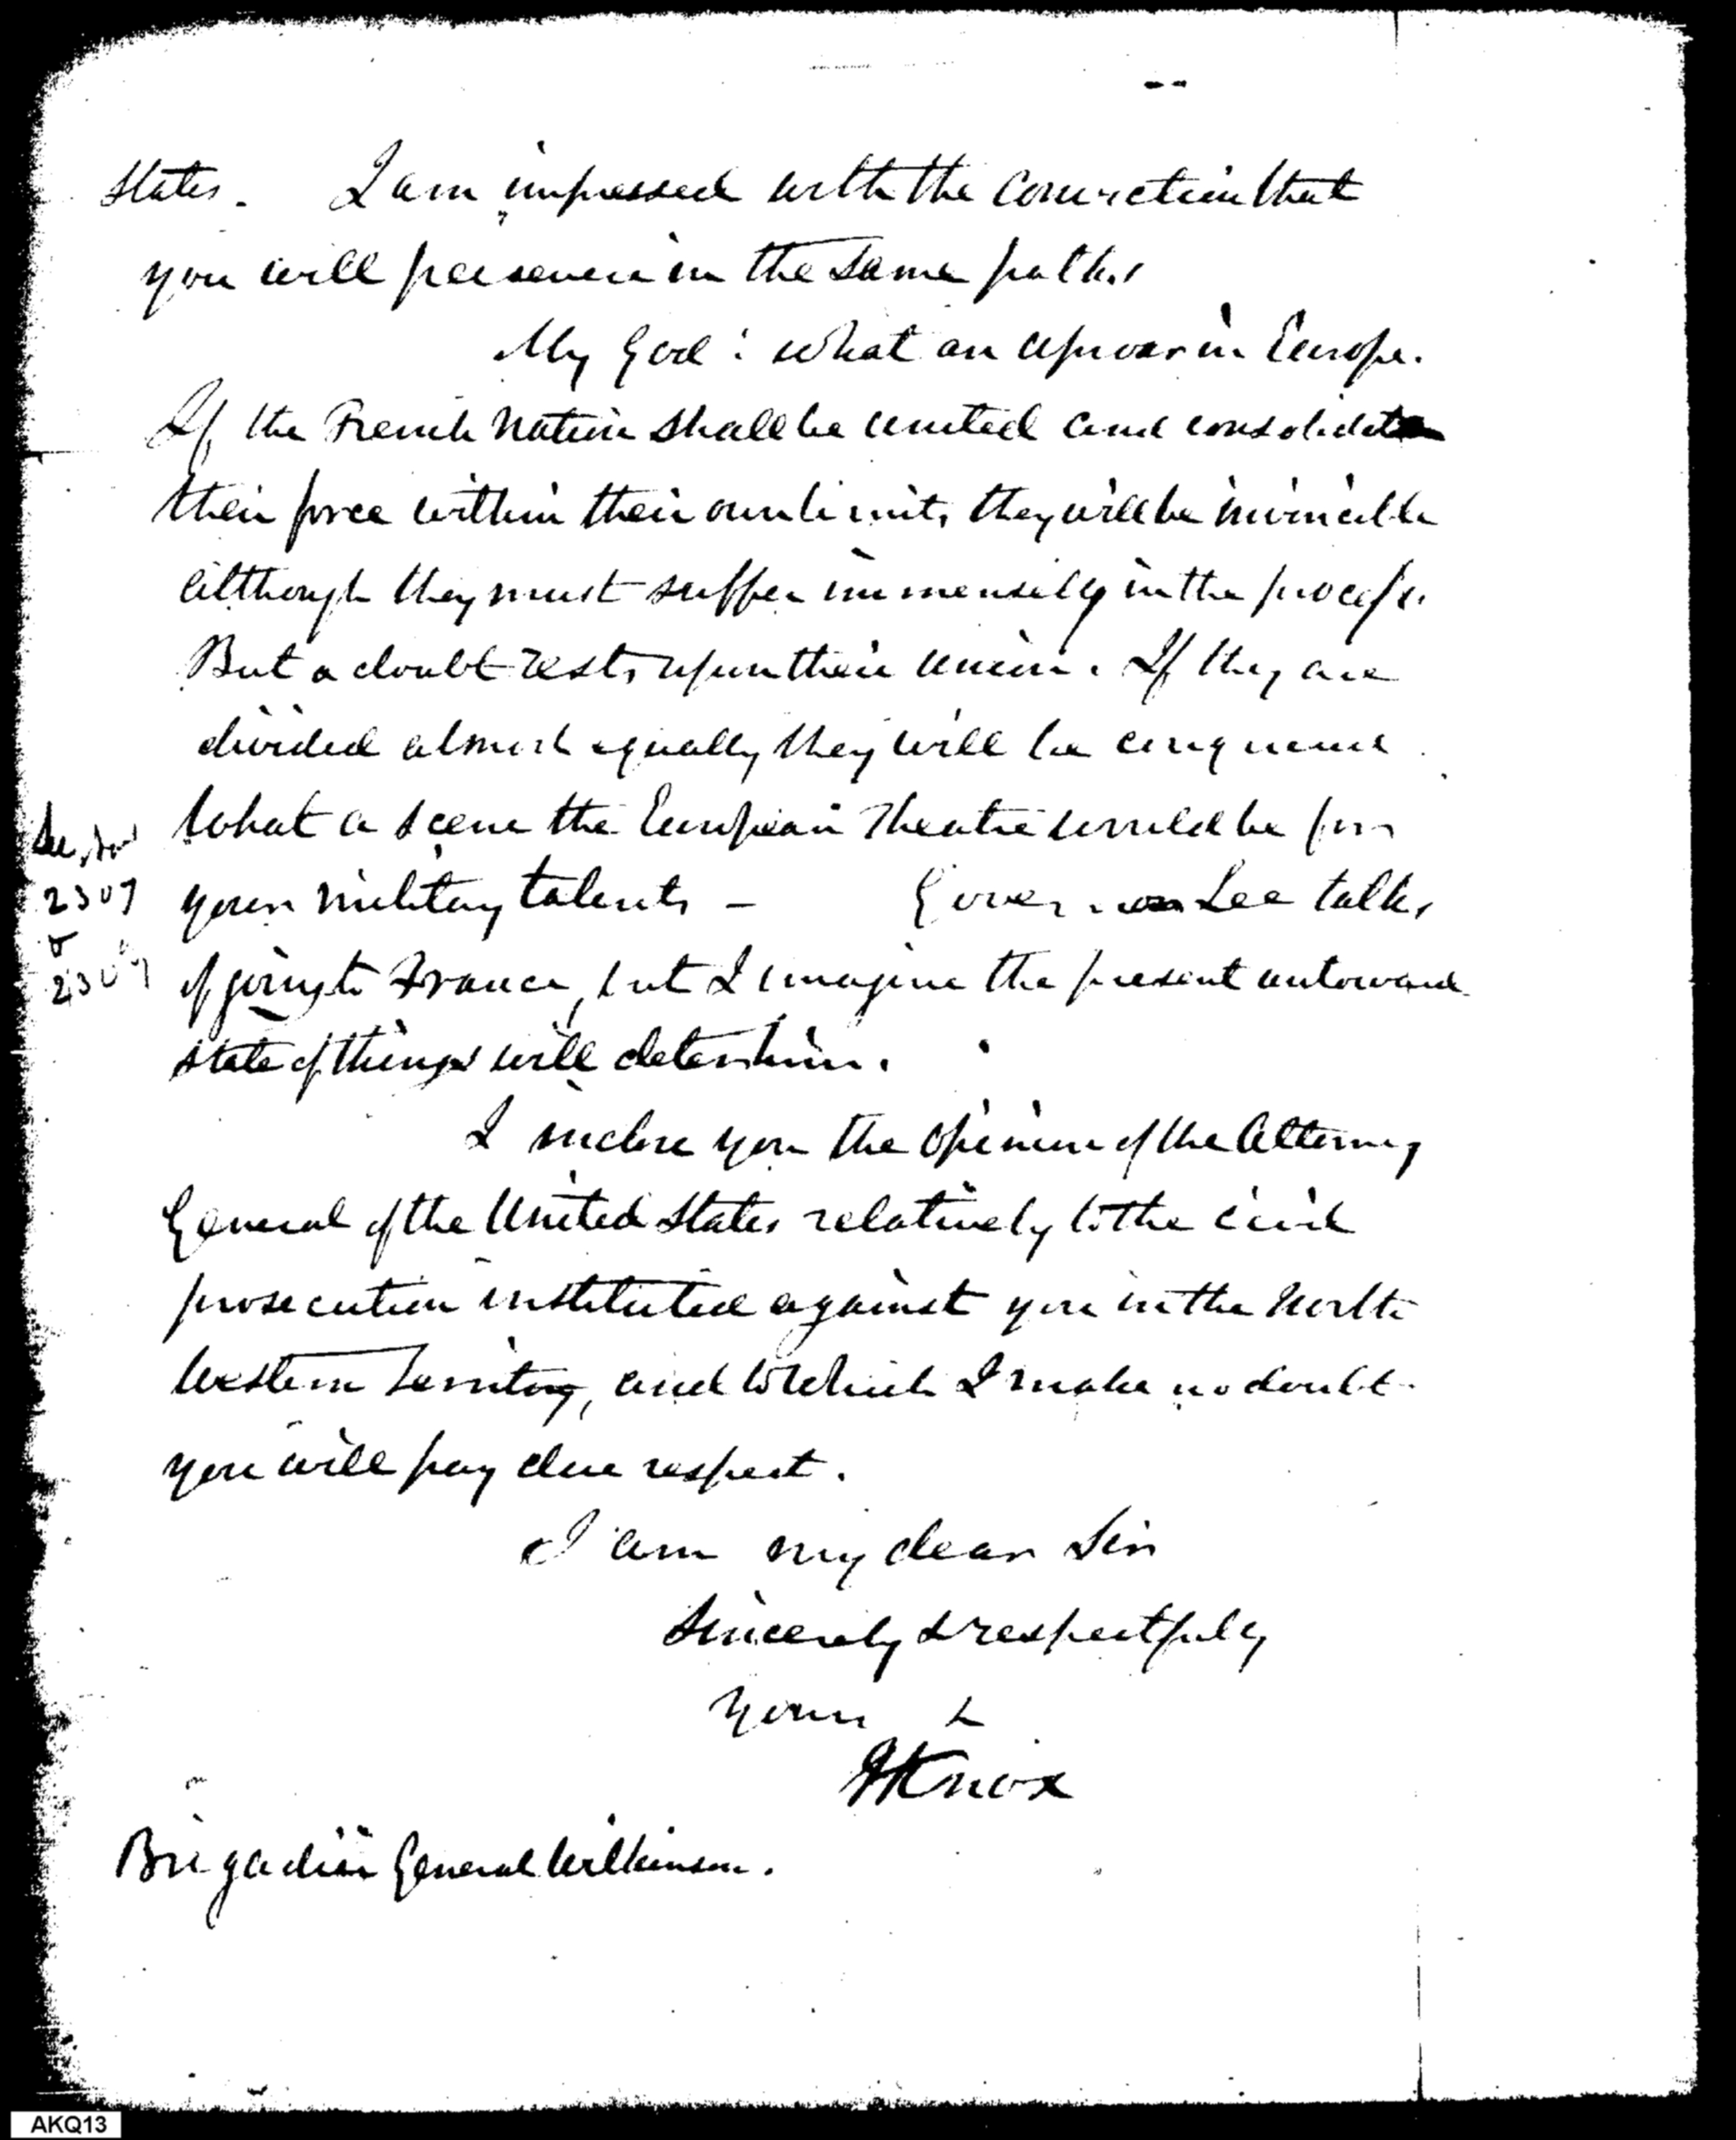 States. I am impressed with the conviction that
you will persevere in the same paths
My God! what an uproar in Europe.
If the French Nation shall be united and consolidate
their force within their own limits they will be invincible
although they must suffer immensely in the process.
But a doubt rests upon their union. If they are
divided almost equally they will be conquered.
What a scene the European Theatre would be for
your military talents – Governor Lee talks
2307
&
2309
of going to France, but I imagine the present untoward
state of things will deter him.
I inclose you the opinion of the Attorney
General of the United States relatively to the civil
prosecution instituted against you in the North
Western Territory, and to which I make no doubt
you will pay due respect.
I am my dear Sir
Sincerely & respectfully
Yours &
HKnox
Brigadier General Wilkinson.
AKQ13